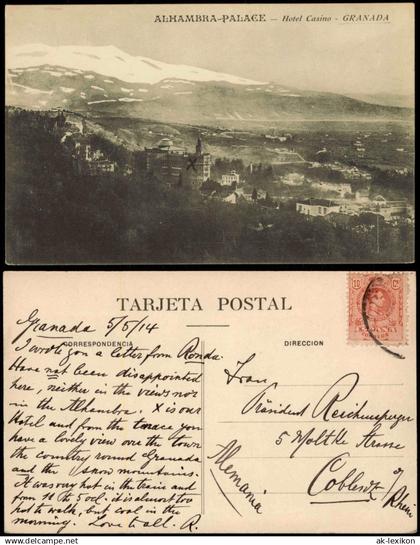 ALHAMBRA-PALACE — Hotel Casino - GRANADA
TARJETA POSTAL
CORRESPONDENCIA
DIRECCION
Granada 5/5/14
I wrote you a letter from Ronda.
Have not been disappointed
here, neither in the views nor
in the Alhambra. X is our
Hotel and from the terrace you
have a lovely view over the town
the country round Granada
and the snow mountains.
It was very hot in the train and
from 10 to 5 ocl. it is almost too
hot to walk, but cool in the
morning. Love to all. R.
Frau
Präsident
5 Moltke Strasse
Coblenz a/
Rhein
Alemania
ak-ansichtskarten.de